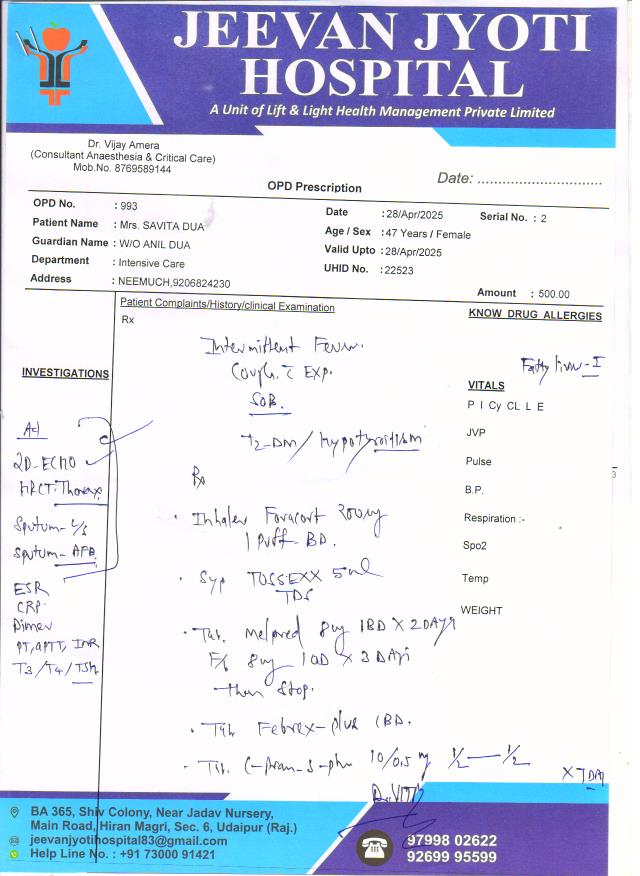 JEEVAN JYOTI
HOSPITAL
A Unit of Lift & Light Health Management Private Limited
Dr. Vijay Amera
(Consultant Anaesthesia & Critical Care)
Mob.No. 8769589144
Date: ..............................
OPD Prescription
OPD No. : 993
Patient Name : Mrs. SAVITA DUA
Guardian Name : W/O ANIL DUA
Department : Intensive Care
Address : NEEMUCH,9206824230
Date : 28/Apr/2025 Serial No. : 2
Age / Sex : 47 Years / Female
Valid Upto : 28/Apr/2025
UHID No. : 22523
Amount : 500.00
Patient Complaints/History/clinical Examination
Rx
KNOW DRUG ALLERGIES
Fatty liver - I
INVESTIGATIONS
Ad
2D-ECHO
HRCT-Thorax
Sputum - C/S
Sputum - AFB
ESR
CRP
Dimer
PT, aPTT, INR
T3/T4/TSH
Intermittent Fever.
Cough c̄ Exp.
SOB.
T2-DM/Hypothyroidism
Rx
Inhaler Foracort 200 mg
1 puff - BD.
Syp TOSSEXX 5ml
TDS
Tab. Melpred 8mg 1BD X 2DAYS
F/b 8mg 1OD X 3 DAYS
then stop.
Tab Febrex-plus 1BD.
Tab. 10/0.5 mg 1/2 — 1/2
X 7 DAY
VITALS
P I Cy CL L E
JVP
Pulse
B.P.
Respiration :-
Spo2
Temp
WEIGHT
BA 365, Shiv Colony, Near Jadav Nursery,
Main Road, Hiran Magri, Sec. 6, Udaipur (Raj.)
jeevanjyotihospital83@gmail.com
Help Line No. : +91 73000 91421
97998 02622
92699 95599